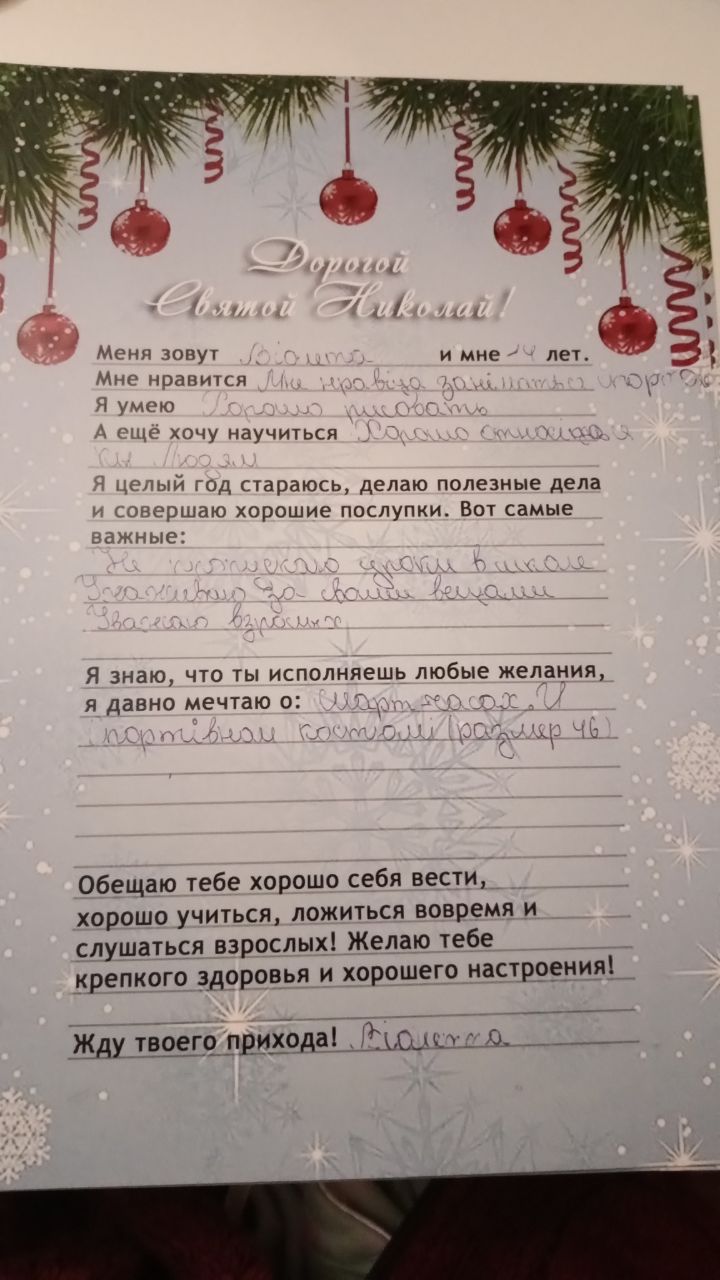 Дорогой
Святой Николай!
Меня зовут Віолета и мне 14 лет.
Мне нравится Мне нравіца заніматься спортом
Я умею Хорошо рисовать
А ещё хочу научиться Хорошо
Людям
Я целый год стараюсь, делаю полезные дела
и совершаю хорошие послупки. Вот самые
важные:
Не уроки в школе
за своїми вещами
Уважаю взрослых
Я знаю, что ты исполняешь любые желания,
я давно мечтаю о: смарт часах. И
спортівном костюмі (размер 46)
Обещаю тебе хорошо себя вести,
хорошо учиться, ложиться вовремя и
слушаться взрослых! Желаю тебе
крепкого здоровья и хорошего настроения!
Жду твоего прихода! Віолетта